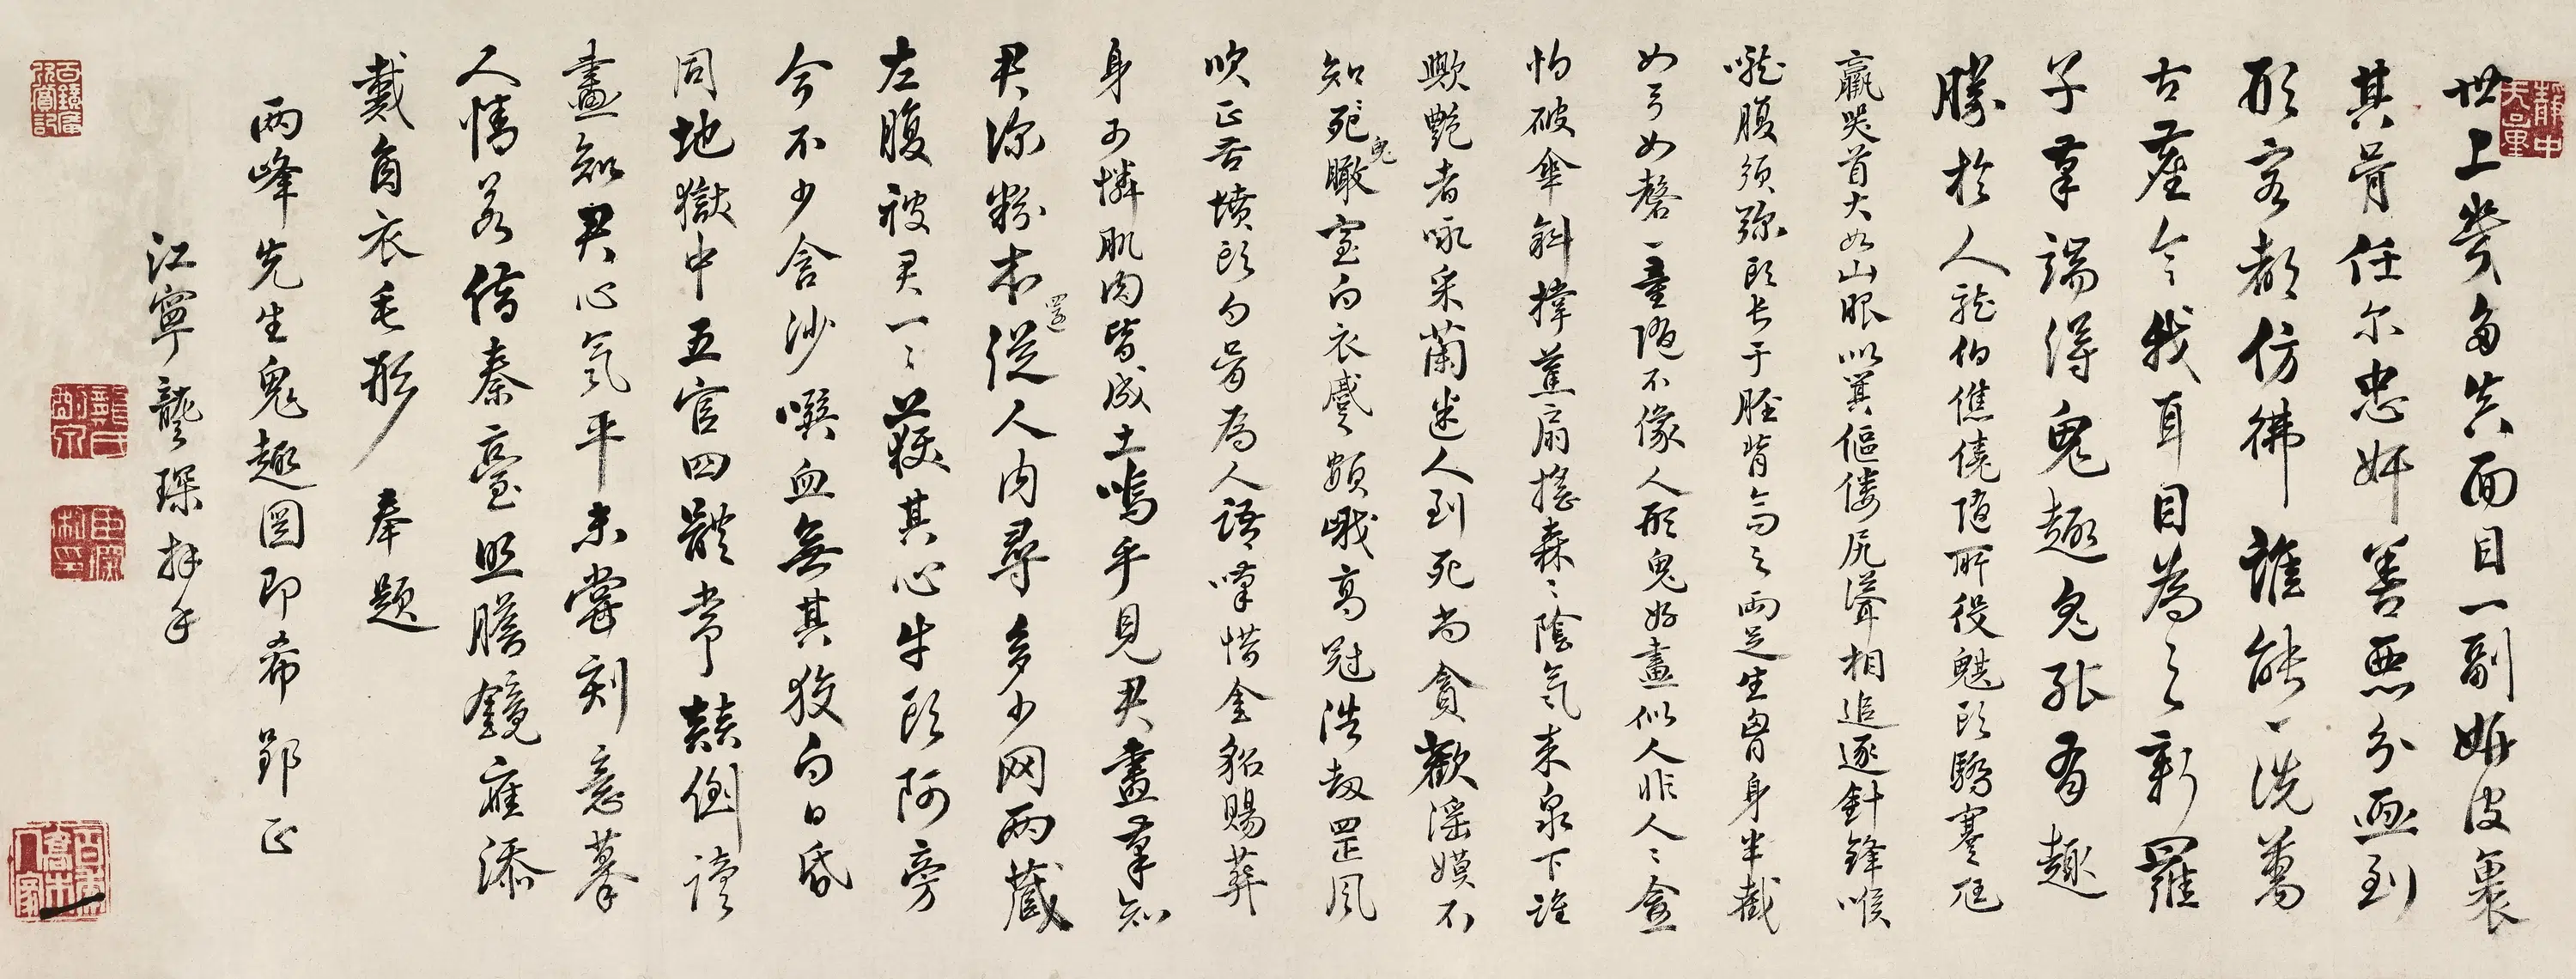 世上幾多真面目一副好皮裹
其骨任尔忠奸善惡分画到
形容都仿彿誰能一洗萬
古塵令我耳目為之新羅
子筆端得鬼趣鬼弧有趣
勝於人龍伯僬僥隨所役魌頭驕蹇尫
羸哭首大如山眼似箕傴僂尻聳相追逐針鋒喉
嚨腹須彌頭長于脛背高之兩足生胷身半截
如弓如磬一童隨不像人形鬼好畫似人非人人盒
怕破傘斜撑蕉扇搖森森陰氣來泉下誰
歟艷者咏采蘭迷人到死尚貪歡淫嫫不
知死鬼瞰室白衣蹙額峨高冠浩劫罡風
吹正苦墳頭勺骨為人語嗥惜金貂賜葬
身可憐肌肉皆成土嗚乎見君畫筆知
君深粉本還從人内尋多少网兩藏
左腹被君一一获其心牛頭阿旁
今不少含沙噀血無其狡白日昏
同地獄中五官四體常顛倒讀
畫知君心氣平未嘗刻意摹
人情若借秦臺照膽鏡應添
戴角衣毛形 奉題
兩峰先生鬼趣圖即希郢正
江寧龔琛拜手